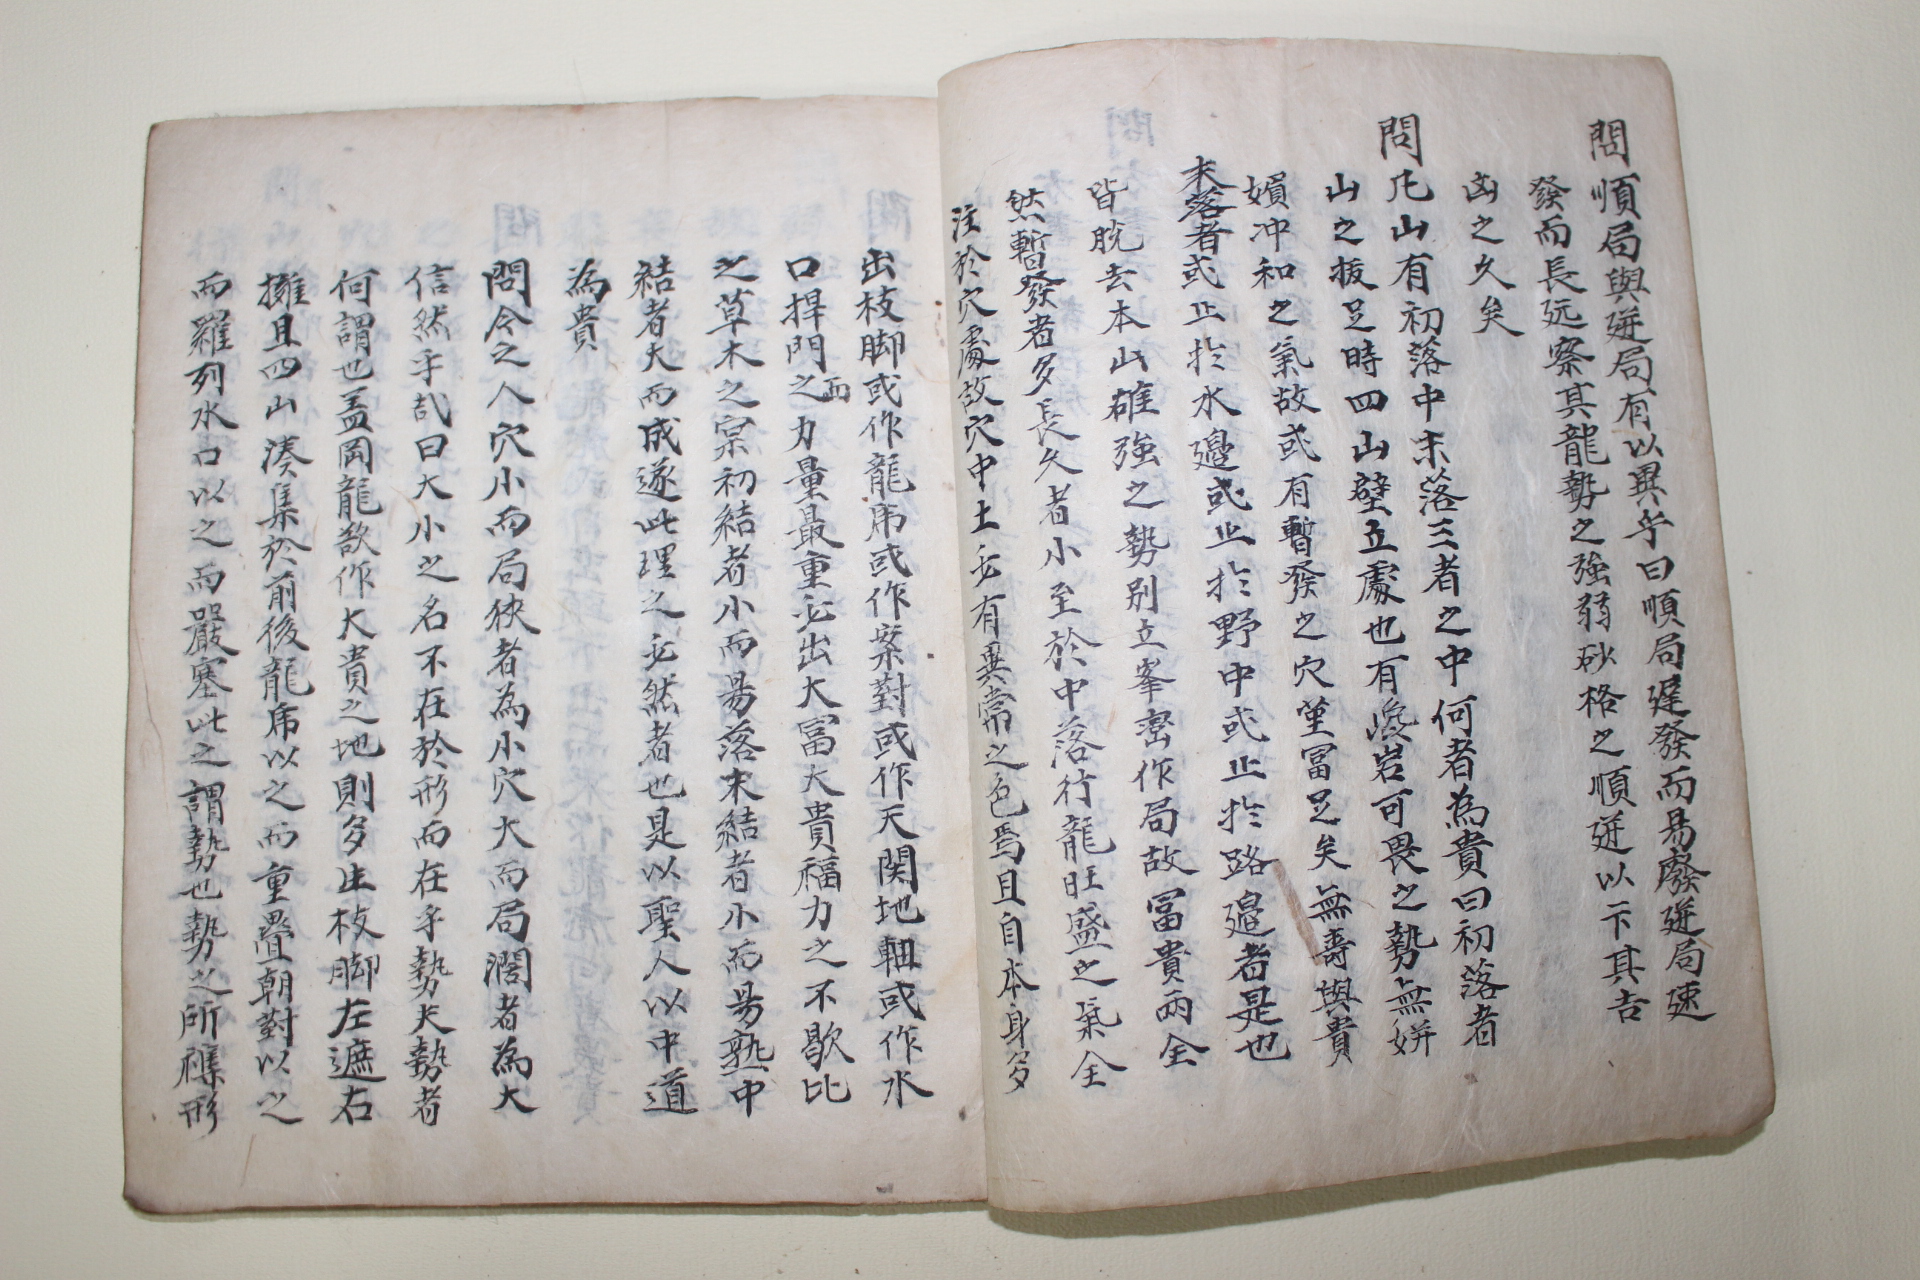 問順局與逆局有以異乎曰順局遲發而易廢逆局速
發而長远察其龍勢之強弱砂格之順逆以卞其吉
凶之久矣
問凡山有初落中末落三者之中何者為貴曰初落者
山之拔足時四山壁立處也有巉岩可畏之勢無妍
娟冲和之氣故或有暫發之穴堇冨足矣無壽與貴
末落者或止於水邉或止於野中或止於路邉者是也
皆脱去本山雄強之勢別立峯巒作局故冨貴兩全
然暫發者多長久者小至於中落行龍旺盛之氣全
注於穴處故穴中土必有異常之色焉且自本身多
出枝脚或作龍虎或作案對或作天関地軸或作水
口捍門之而力量最重必出大冨大貴福力之不歇比
之草木之宲初結者小而易落末結者小而易熟中
結者大而成遂此理之必然者也是以聖人以中道
為貴
問今之人穴小而局狹者為小穴大而局濶者為大
信然乎㢤曰大小之名不在於形而在乎勢夫勢者
何謂也盖岡龍欲作大貴之地則多生枝脚左遮右
擁且四山湊集於前後龍虎以之而重疊朝對以之
而羅列水口以之而嚴塞此之謂勢也勢之所襍形